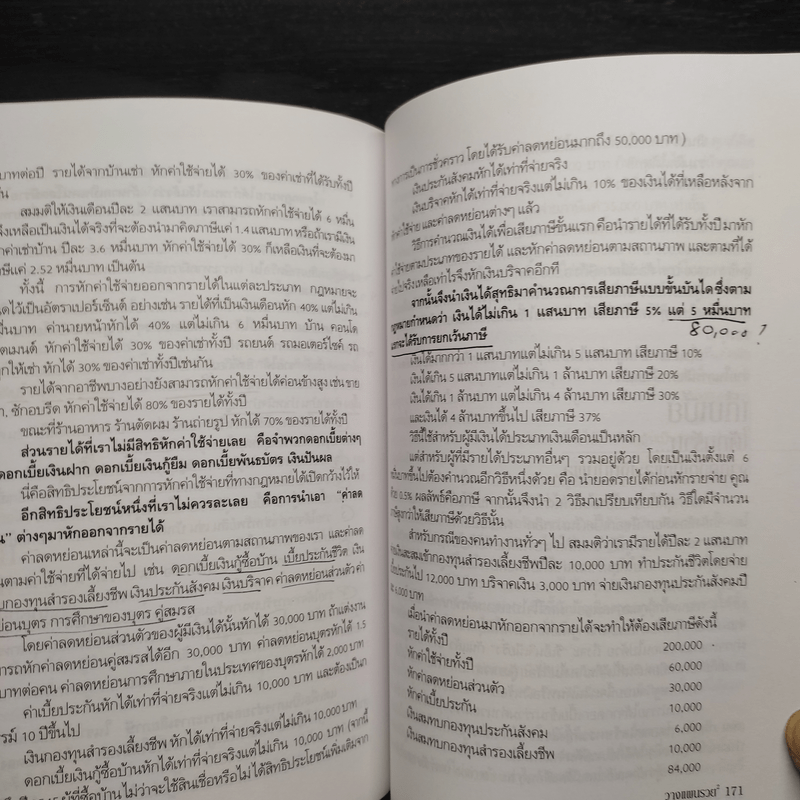 บาทต่อปี รายได้จากบ้านเช่า หักค่าใช้จ่ายได้ 30% ของค่าเช่าที่ได้รับทั้งปี
สมมติให้เงินเดือนปีละ 2 แสนบาท เราสามารถหักค่าใช้จ่ายได้ 6 หมื่น
จึงเหลือเป็นเงินได้จริงที่จะต้องนำมาคิดภาษีแค่ 1.4 แสนบาท หรือถ้าเรามีเงิน
ค่าเช่าบ้าน ปีละ 3.6 หมื่นบาท หักค่าใช้จ่ายได้ 30% ก็เหลือเงินที่จะต้องมา
ภาษีแค่ 2.52 หมื่นบาท เป็นต้น
ทั้งนี้ การหักค่าใช้จ่ายออกจากรายได้ในแต่ละประเภท กฎหมายจะ
ไว้เป็นอัตราเปอร์เซ็นต์ อย่างเช่น รายได้ที่เป็นเงินเดือนหัก 40% แต่ไม่เกิน
หมื่นบาท ค่านายหน้าหักได้ 40% แต่ไม่เกิน 6 หมื่นบาท บ้าน คอนโด
หักค่าใช้จ่ายได้ 30% ของค่าเช่าทั้งปี รถยนต์ รถมอเตอร์ไซค์ รถ
ให้เช่า หักได้ 30% ของค่าเช่าทั้งปีเช่นกัน
รายได้จากอาชีพบางอย่างยังสามารถหักค่าใช้จ่ายได้ค่อนข้างสูง เช่น ขาย
ซักอบรีด หักค่าใช้จ่ายได้ 80% ของรายได้ทั้งปี
ขณะที่ร้านอาหาร ร้านตัดผม ร้านถ่ายรูป หักได้ 70% ของรายได้ทั้งปี
ส่วนรายได้ที่เราไม่มีสิทธิหักค่าใช้จ่ายเลย คือจำพวกดอกเบี้ยต่างๆ
ดอกเบี้ยเงินฝาก ดอกเบี้ยเงินกู้ยืม ดอกเบี้ยพันธบัตร เงินปันผล
นี่คือสิทธิประโยชน์จากการหักค่าใช้จ่ายที่ทางกฎหมายได้เปิดกว้างไว้ให้
อีกสิทธิประโยชน์หนึ่งที่เราไม่ควรละเลย คือการนำเอา “ค่าลด
” ต่างๆมาหักออกจากรายได้
ค่าลดหย่อนเหล่านี้จะเป็นค่าลดหย่อนตามสถานภาพของเรา และค่าลด
ตามค่าใช้จ่ายที่ได้จ่ายไป เช่น ดอกเบี้ยเงินกู้ซื้อบ้าน เบี้ยประกันชีวิต เงิน
กองทุนสำรองเลี้ยงชีพ เงินประกันสังคม เงินบริจาค ค่าลดหย่อนส่วนตัว ค่า
หย่อนบุตร การศึกษาของบุตร คู่สมรส
โดยค่าลดหย่อนส่วนตัวของผู้มีเงินได้นั้นหักได้ 30,000 บาท ถ้าแต่งงาน
สามารถหักค่าลดหย่อนคู่สมรสได้อีก 30,000 บาท ค่าลดหย่อนบุตรหักได้ 1.5
บาทต่อคน ค่าลดหย่อนการศึกษาภายในประเทศของบุตรหักได้ 2,000 บาท
ค่าเบี้ยประกันหักได้เท่าที่จ่ายจริงแต่ไม่เกิน 10,000 บาท และต้องเป็น
10 ปีขึ้นไป
เงินกองทุนสำรองเลี้ยงชีพ หักได้เท่าที่จ่ายจริงแต่ไม่เกิน 10,000 บาท
ดอกเบี้ยเงินกู้ซื้อบ้านหักได้เท่าที่จ่ายจริงแต่ไม่เกิน 10,000 บาท (จากนี้
ผู้ที่ซื้อบ้าน ไม่ว่าจะใช้สินเชื่อหรือไม่ ได้สิทธิประโยชน์เพิ่มเติมจาก
เป็นการชั่วคราว โดยได้รับค่าลดหย่อนมากถึง 50,000 บาท )
เงินประกันสังคมหักได้เท่าที่จ่ายจริง
เงินบริจาคหักได้เท่าที่จ่ายจริงแต่ไม่เกิน 10% ของเงินได้ที่เหลือหลังจาก
หักค่าใช้จ่าย และค่าลดหย่อนต่างๆ แล้ว
วิธีการคำนวณเงินได้เพื่อเสียภาษีขั้นแรก คือนำรายได้ที่ได้รับทั้งปีมาหัก
ค่าใช้จ่ายตามประเภทของรายได้ และหักค่าลดหย่อนตามสถานภาพ และตามที่ได้
จ่ายไปจริงเหลือเท่าไรจึงหักเงินบริจาคอีกที
จากนั้นจึงนำเงินได้สุทธิมาคำนวณการเสียภาษีแบบขั้นบันได ซึ่งตาม
กฎหมายกำหนดว่า เงินได้ไม่เกิน 1 แสนบาท เสียภาษี 5% แต่ 5 หมื่นบาท
แรกจะได้รับการยกเว้นภาษี
80,000 ?
เงินได้มากกว่า 1 แสนบาทแต่ไม่เกิน 5 แสนบาท เสียภาษี 10%
เงินได้เกิน 5 แสนบาทแต่ไม่เกิน 1 ล้านบาท เสียภาษี 20%
เงินได้เกิน 1 ล้านบาท แต่ไม่เกิน 4 ล้านบาท เสียภาษี 30%
และเงินได้ 4 ล้านบาทขึ้นไป เสียภาษี 37%
วิธีนี้ใช้สำหรับผู้มีเงินได้ประเภทเงินเดือนเป็นหลัก
แต่สำหรับผู้ที่มีรายได้ประเภทอื่นๆ รวมอยู่ด้วย โดยเป็นเงินตั้งแต่ 6
หมื่นบาทขึ้นไปต้องคำนวณอีกวิธีหนึ่งด้วย คือ นำยอดรายได้ก่อนหักรายจ่าย คูณ
ด้วย 0.5% ผลลัพธ์คือภาษี จากนั้นจึงนำ 2 วิธีมาเปรียบเทียบกัน วิธีใดมีจำนวน
ภาษีสูงกว่าให้เสียภาษีด้วยวิธีนั้น
สำหรับกรณีของคนทำงานทั่วๆ ไป สมมติว่าเรามีรายได้ปีละ 2 แสนบาท
จ่ายเงินสะสมเข้ากองทุนสำรองเลี้ยงชีพปีละ 10,000 บาท ทำประกันชีวิตโดยจ่าย
เบี้ยประกันไป 12,000 บาท บริจาคเงิน 3,000 บาท จ่ายเงินกองทุนประกันสังคมปี
ละ 6,000 บาท
เมื่อนำค่าลดหย่อนมาหักออกจากรายได้จะทำให้ต้องเสียภาษีดังนี้
รายได้ทั้งปี 200,000
หักค่าใช้จ่ายทั้งปี 60,000
หักค่าลดหย่อนส่วนตัว 30,000
หักค่าเบี้ยประกัน 10,000
เงินสมทบกองทุนประกันสังคม 6,000
เงินสมทบกองทุนสำรองเลี้ยงชีพ 10,000
84,000
วางแผนรวย² 171